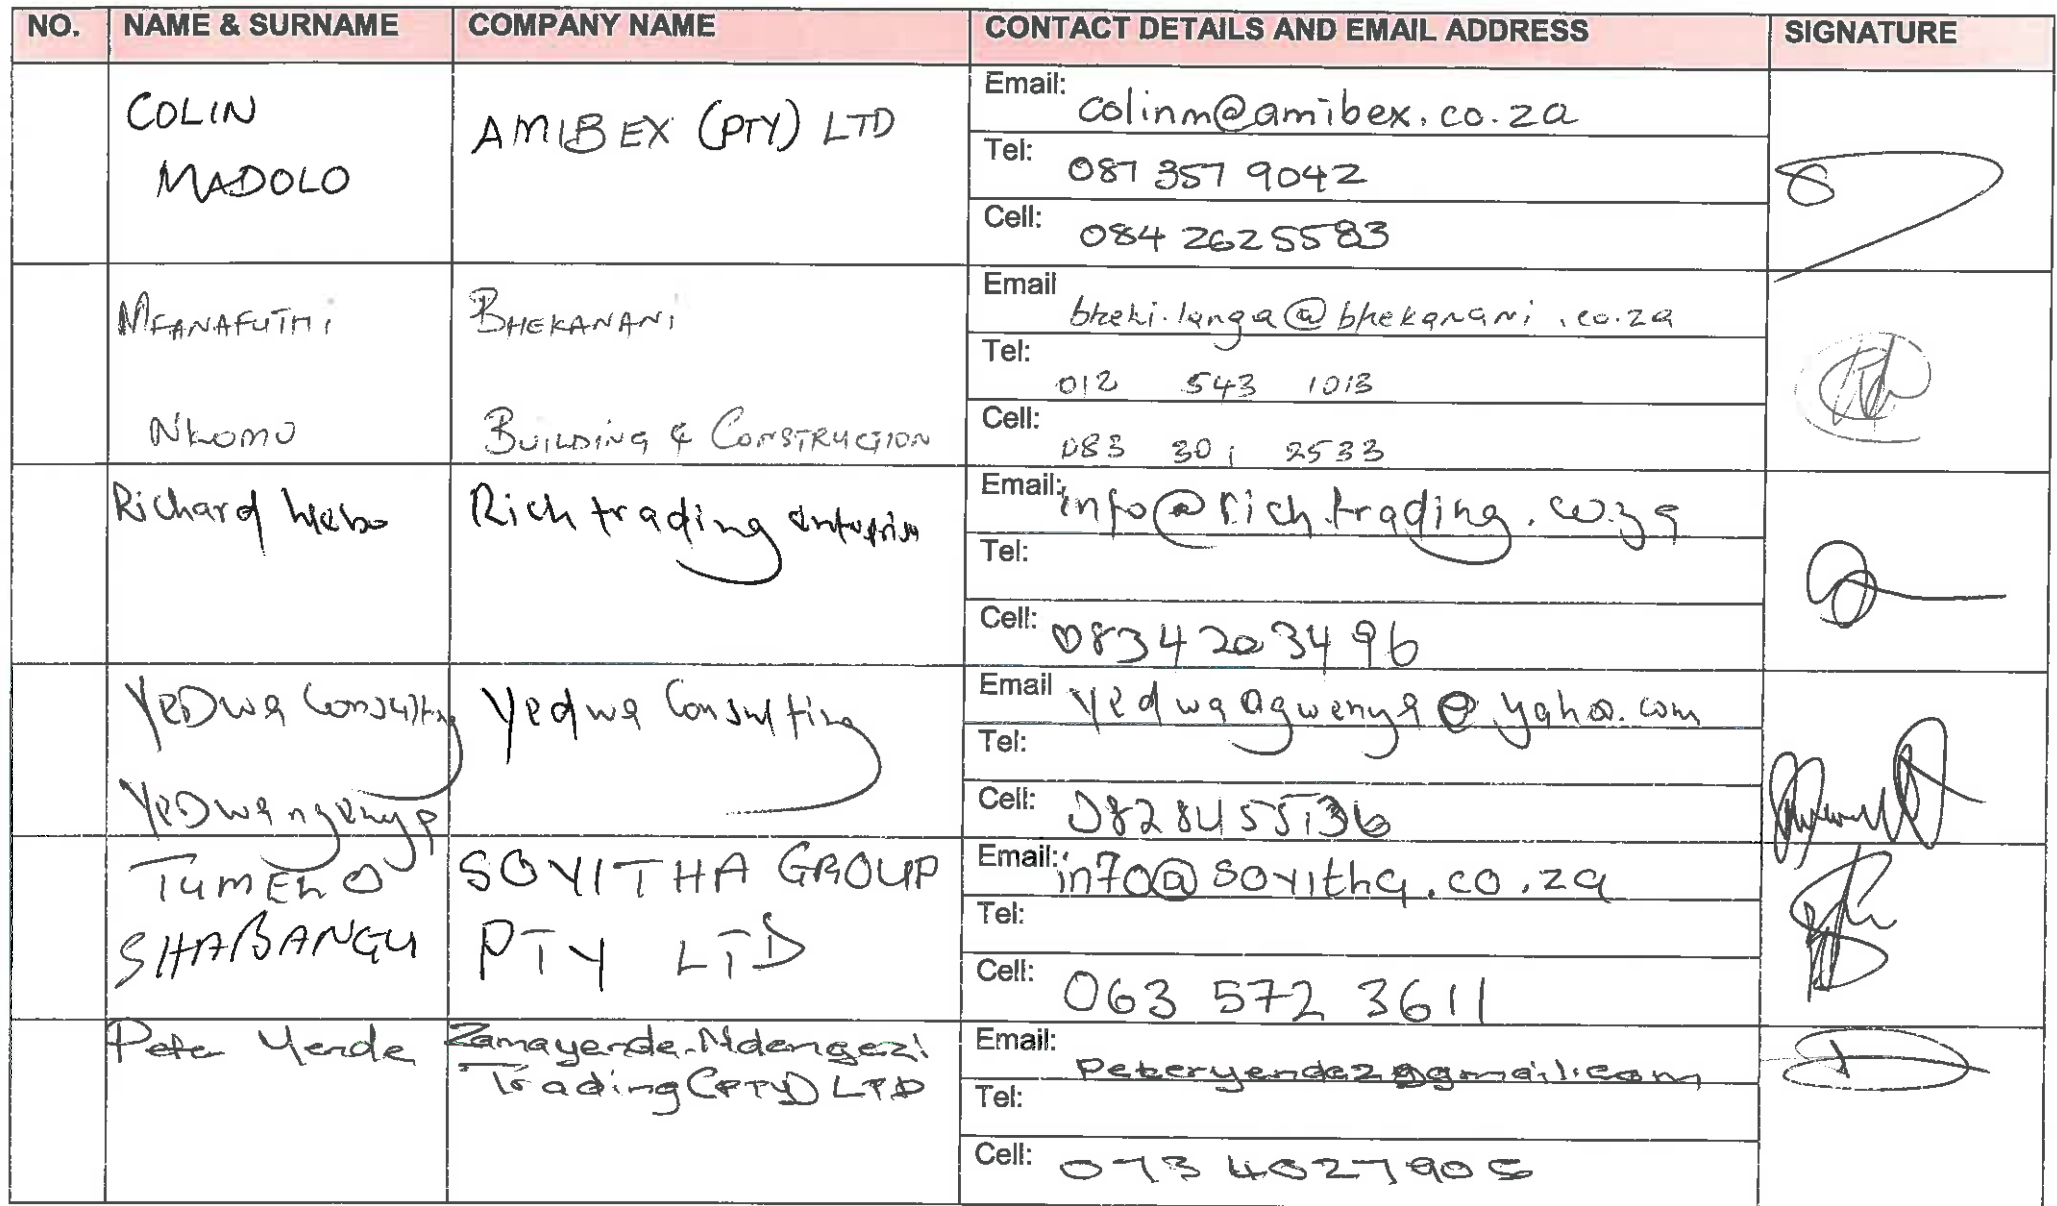 NO. NAME & SURNAME COMPANY NAME CONTACT DETAILS AND EMAIL ADDRESS SIGNATURE
COLIN MADOLO
AMIBEX (PTY) LTD
Email: colinm@amibex.co.za
Tel: 087 357 9042
Cell: 084 2625583
MFANAFUTHI
NKOMO
BHEKANANI
BUILDING & CONSTRUCTION
Email bheki.langa@bhekanani.co.za
Tel: 012 543 1013
Cell: 083 301 2533
Richard
Rich trading
Email: info@rich.trading.co.za
Tel:
Cell: 0834203496
YeDwa Consulting
YeDwa
Yedwa Consulting
Email
Tel:
Cell: 0828455136
TUMELO
SHABANGU
SOYITHA GROUP
PTY LTD
Email: info@soyitha.co.za
Tel:
Cell: 063 572 3611
Peter Yende
Zamayende.Mdengezi
Trading (PTY) LTD
Email: peteryende2@gmail.com
Tel:
Cell: 073 4027905